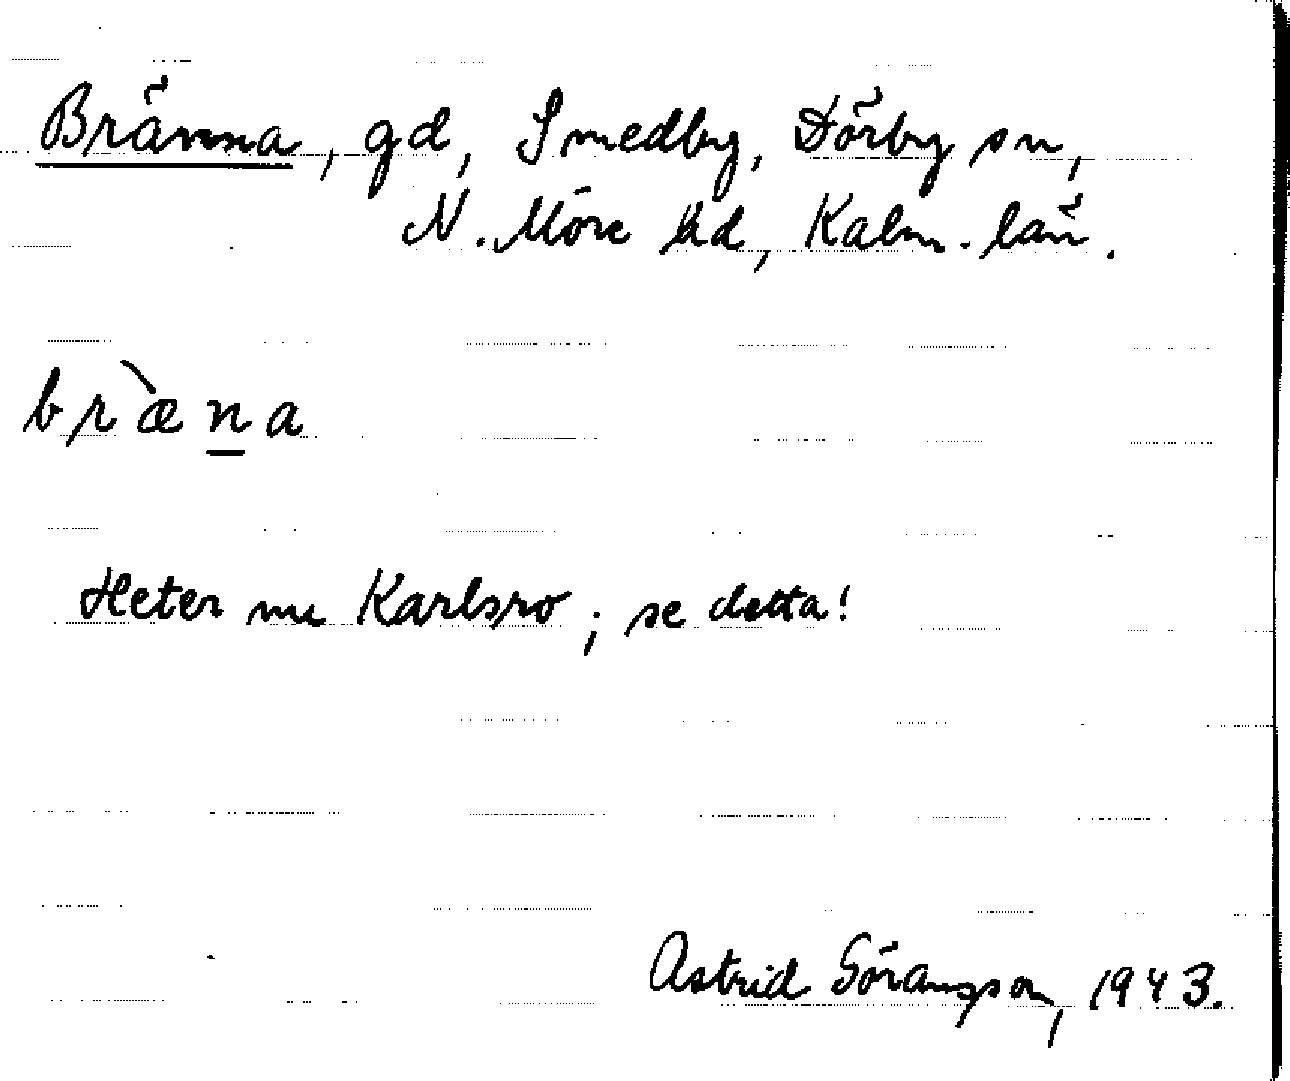 Bränna, gd, Smedby, Dörby sn,
N. Möre hd, Kalm. län.
bræ̀n̲a
Heter nu Karlsro; se detta!
Astrid Göransson, 1943.